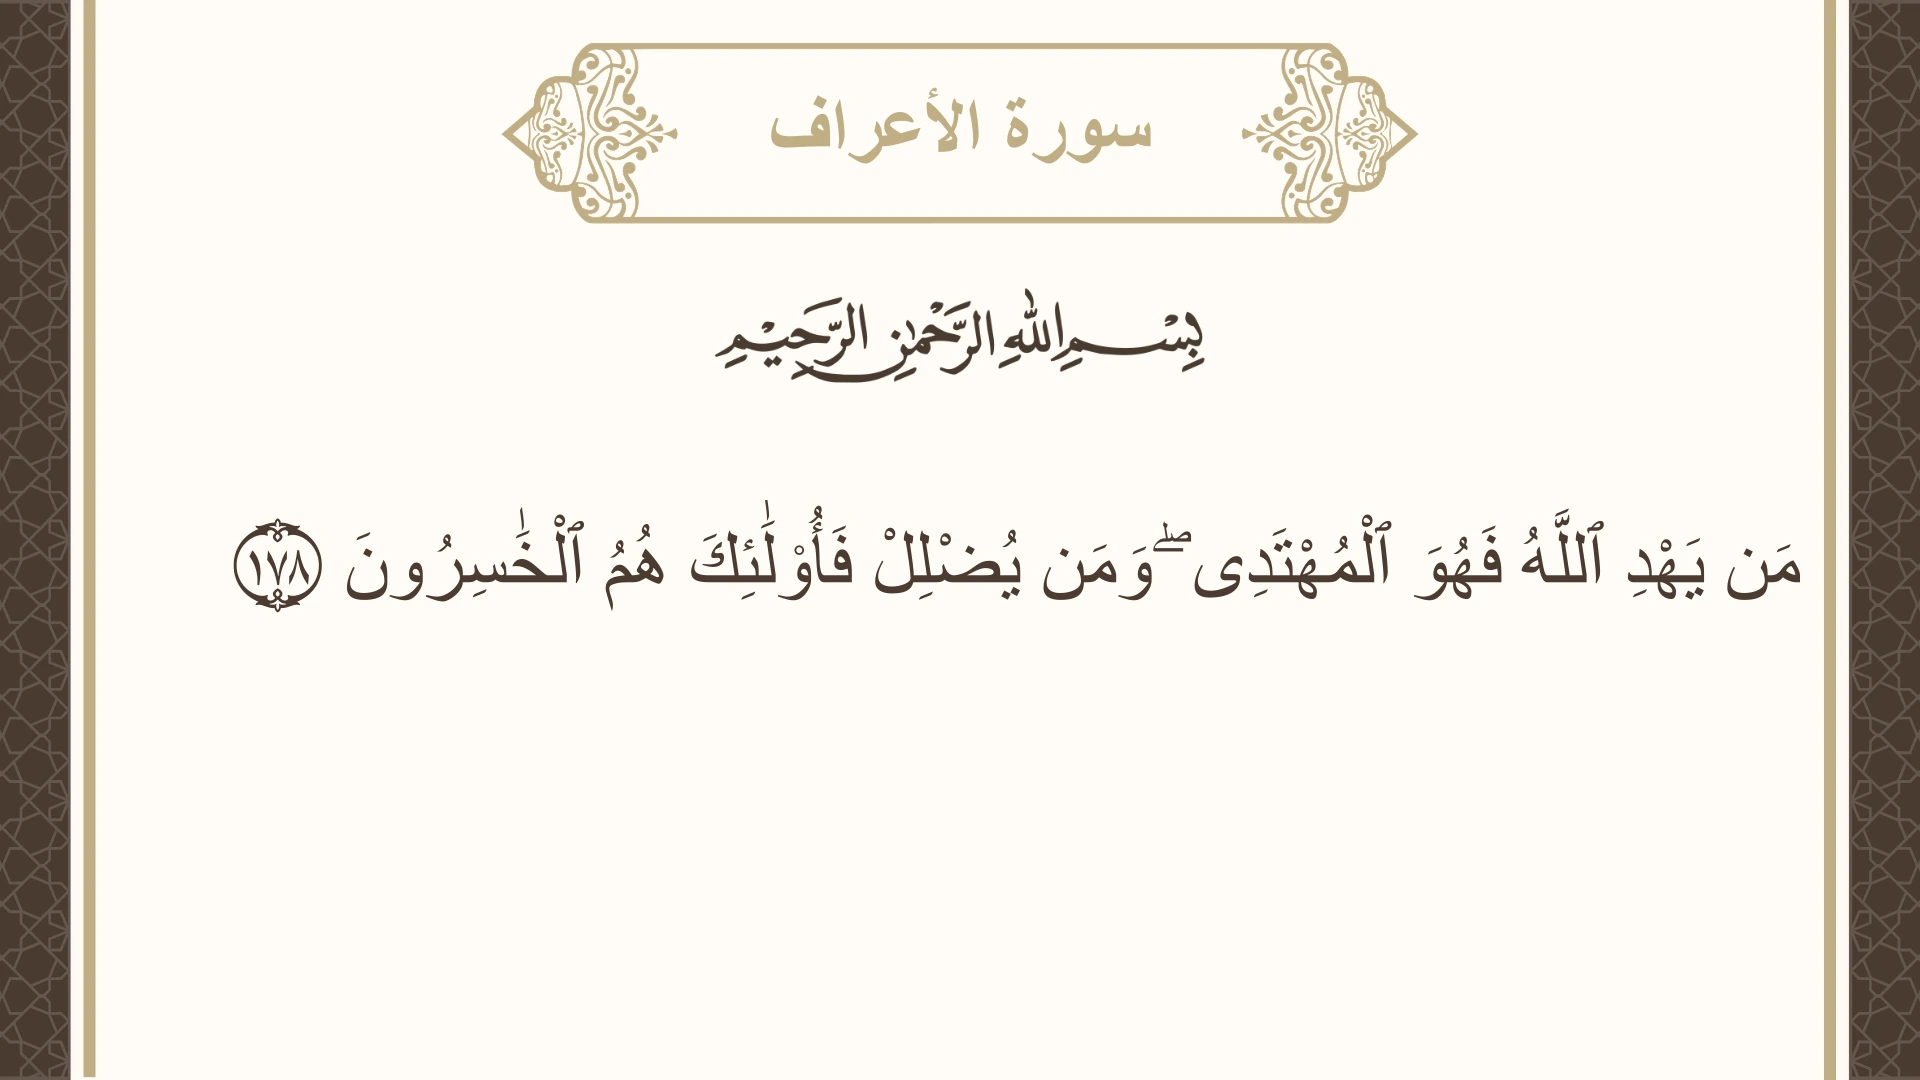 سورة الأعراف
بِسْمِ اللَّهِ الرَّحْمَٰنِ الرَّحِيمِ
مَن يَهْدِ ٱللَّهُ فَهُوَ ٱلْمُهْتَدِى ۖ وَمَن يُضْلِلْ فَأُو۟لَٰٓئِكَ هُمُ ٱلْخَٰسِرُونَ ١٧٨